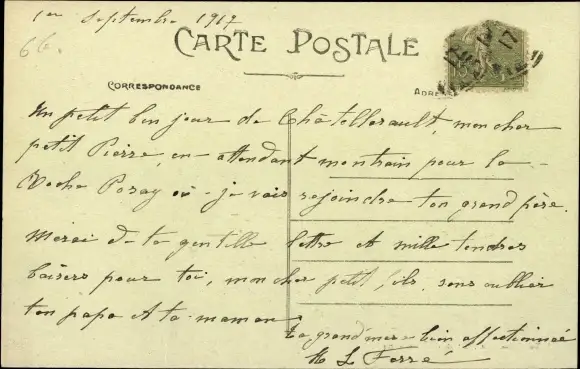 1er Septembre 1917
66.
CARTE POSTALE
CORRESPONDANCE
ADRESSE
Un petit bonjour de Châtellerault, mon cher
petit Pierre, en attendant mon train pour la
Roche Posay où je vais rejoindre ton grand père.
Merci de ta gentille lettre et mille tendres
baisers pour toi, mon cher petit, ils, sans oublier
ton papa et ta maman
Ta grand'mère bien affectionnée
L Ferré